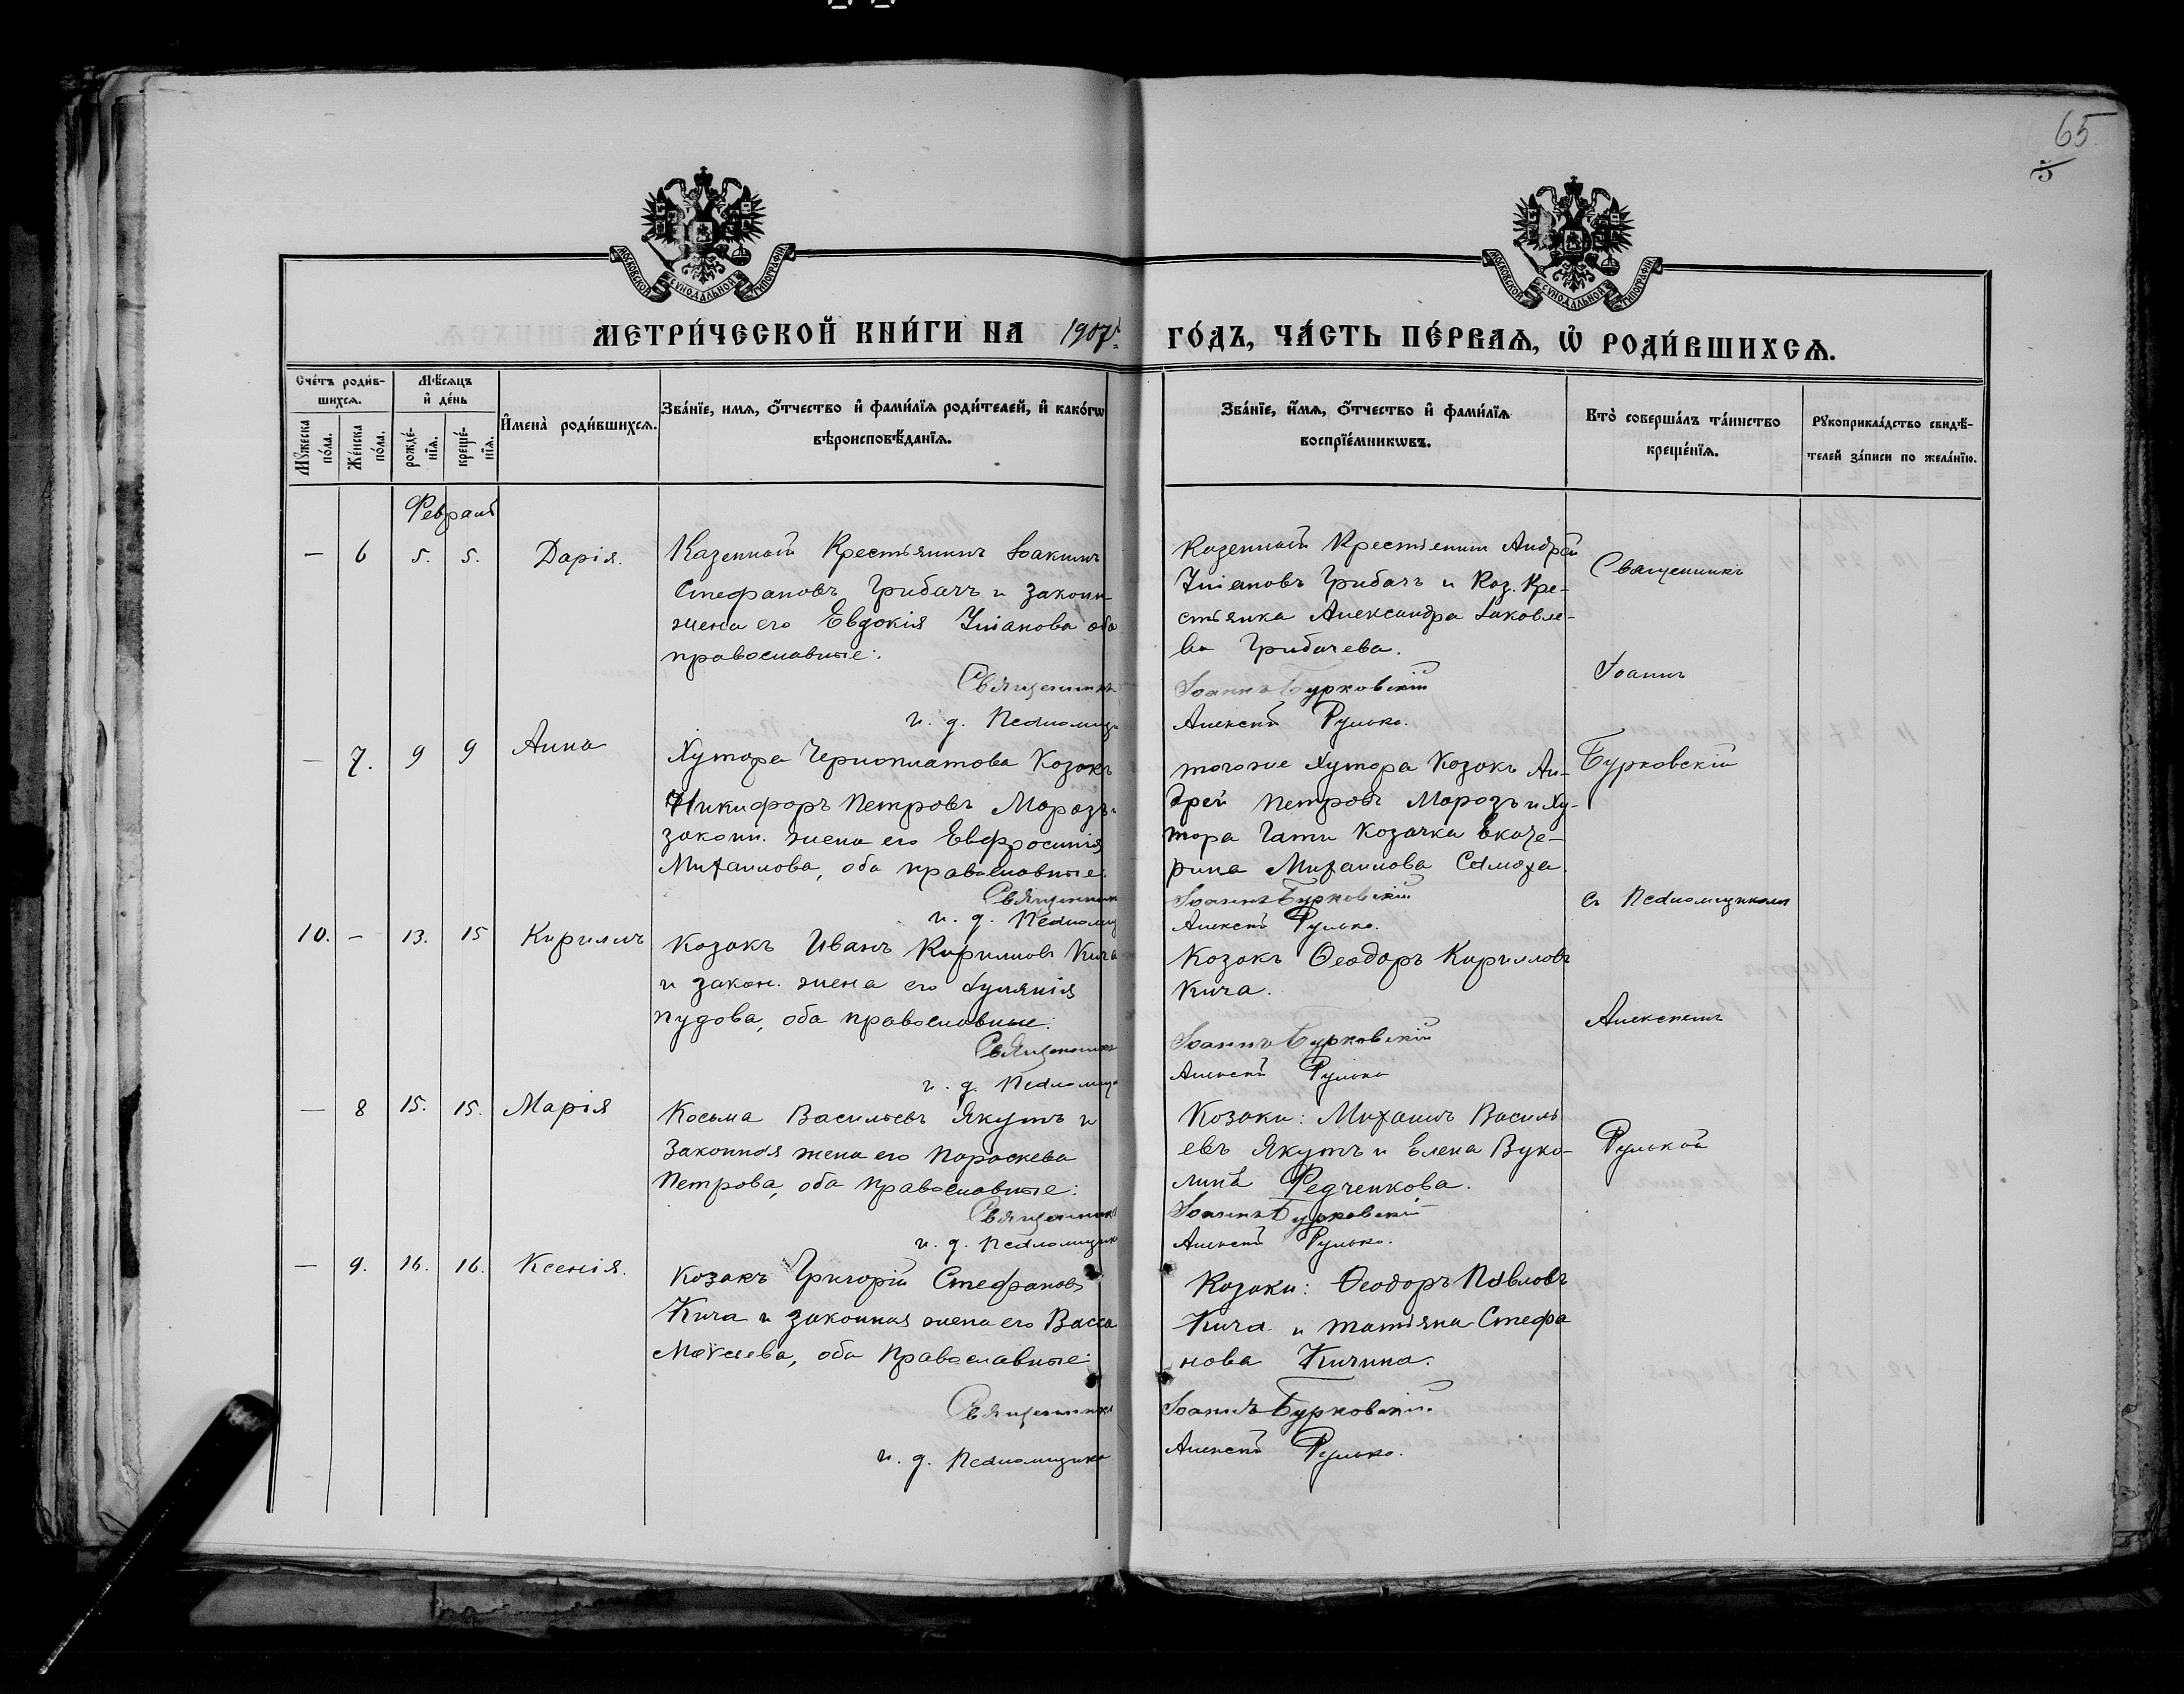 65
5
МОСКОВСКОЙ СУНОДАЛЬНОЙ ТИПОГРАФІИ
МОСКОВСКОЙ СУНОДАЛЬНОЙ ТИПОГРАФІИ
МЕТРИ́ЧЕСКОЙ КНИ́ГИ НА 1907 ГО́ДЪ, ЧА́СТЬ ПЕ́РВАѦ, Ѡ҆ РОДИ́ВШИХСѦ.
Сче́тъ роди́в-
шихсѧ.
Мѣ́сѧцъ
и҆ де́нь
Мꙋ́жеска по́ла.
Же́нска по́ла.
рожде́-
нїѧ.
креще́-
нїѧ.
И҆мена̀ роди́вшихсѧ.
Зва́нїе, имѧ, ѻ҆́тчество и҆ фами́лїѧ роди́телей, и҆ како́гѡ
вѣроисповѣ́данїѧ.
Зва́нїе, и҆́мѧ, ѻ҆́тчество и҆ фами́лїѧ
воспрїе́мникѡвъ.
Кто̀ соверша́лъ та́инство
креще́нїѧ.
Рꙋкоприкла́дство свидѣ́-
телей за́писи по жела́нїю.
Февраль
— 6 5. 5. Дарія.
Казенный Крестьянинъ Іоакимъ
Стефановъ Грибачъ и законн
жена его Евдокія Уліанова оба
православные:
Священникъ
и. д. Псаломщ
Казенный Крестьянин Андрей
Уліановъ Грибачъ и Каз. Кре-
стьянка Александра Іаковле-
ва Грибачева.
Іоаннъ Бурковскій
Алексѣй Рулько.
Священникъ
Іоаннъ
Бурковскій
съ Псаломщикомъ
Алексѣемъ
Рулькой
— 7. 9 9 Анна
Хутора Черноплатова Козакъ
Никифоръ Петровъ Морозъ и
законн. жена его Евфросинія
Михаилова, оба православные:
Священник
и. д. Псаломщ
тогоже Хутора Козакъ Ан-
дрей Петровъ Морозъ и Ху-
тора Гати Козачка Екате-
рина Михаилова
Іоаннъ Бурковскій
Алексѣй Рулько.
10. — 13. 15 Кириллъ
Козакъ Иванъ Кирилловъ Кича
и закон. жена его Іуліанія
Пудова, оба православные:
Священникъ
и. д. Псаломщ
Козакъ Ѳеодоръ Кирилловъ
Кича.
Іоаннъ Бурковскій
Алексѣй Рулько
— 8 15. 15. Марія
Косьма Васильевъ Якутъ и
Законная жена его Параскева
Петрова, оба православные:
Священникъ
и. д. Псаломщик
Козаки: Михаилъ Василь
евъ Якутъ и Елена Вуко-
лина Федченкова.
Іоаннъ Бурковскій
Алексѣй Рулько.
— 9. 16. 16. Ксенія.
Козакъ Григорій Стефановъ
Кича и законная жена его Васса
Моѵсеева, оба Православные:
Священникъ
и. д. Псаломщика
Козаки: Ѳеодоръ Павловъ
Кича и Татіяна Стефа
нова Кичина.
Іоаннъ Бурковскій.
Алексѣй Рулько.